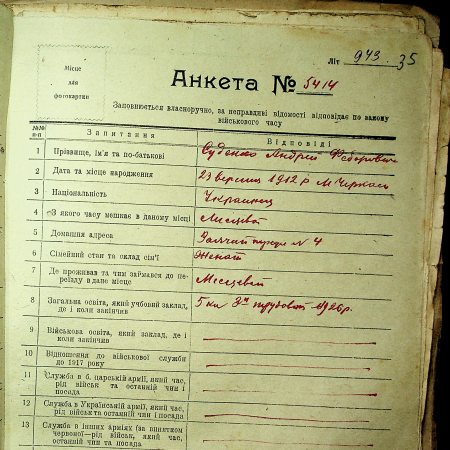 Літ 943. 35
Місце
для
фотокартки
Анкета № 5414
Заповнюється власноручно, за неправдиві відомості відповідає по закону
військового часу
№№ п-п Запитання Відповіді
1 Прізвище, ім'я та по-батькові Суденко Андрій Федорович
2 Дата та місце народження 23 1912 р м Черкаси
3 Національність Украинец
4 З якого часу мешкає в даному місці Лисцевой
5 Домашня адреса № 4
6 Сімейний стан та склад сім'ї Женат
7 Де проживав та чим займався до пе-
реїзду в дане місце Місцевой
8 Загальна освіта, який учбовий заклад,
де і коли закінчив 5 кл 1926 р.
9 Військова освіта, який заклад, де і
коли закінчив
10 Відношення до військової служби
до 1917 року
11 Служба в б. царській армії, який час,
рід військ та останній чин і
посада
12 Служба в Українській армії, який час,
рід військ та останній чин і посада
13 Служба в інших арміях (за винятком
червоної—рід військ, який час,
останній чин та посада